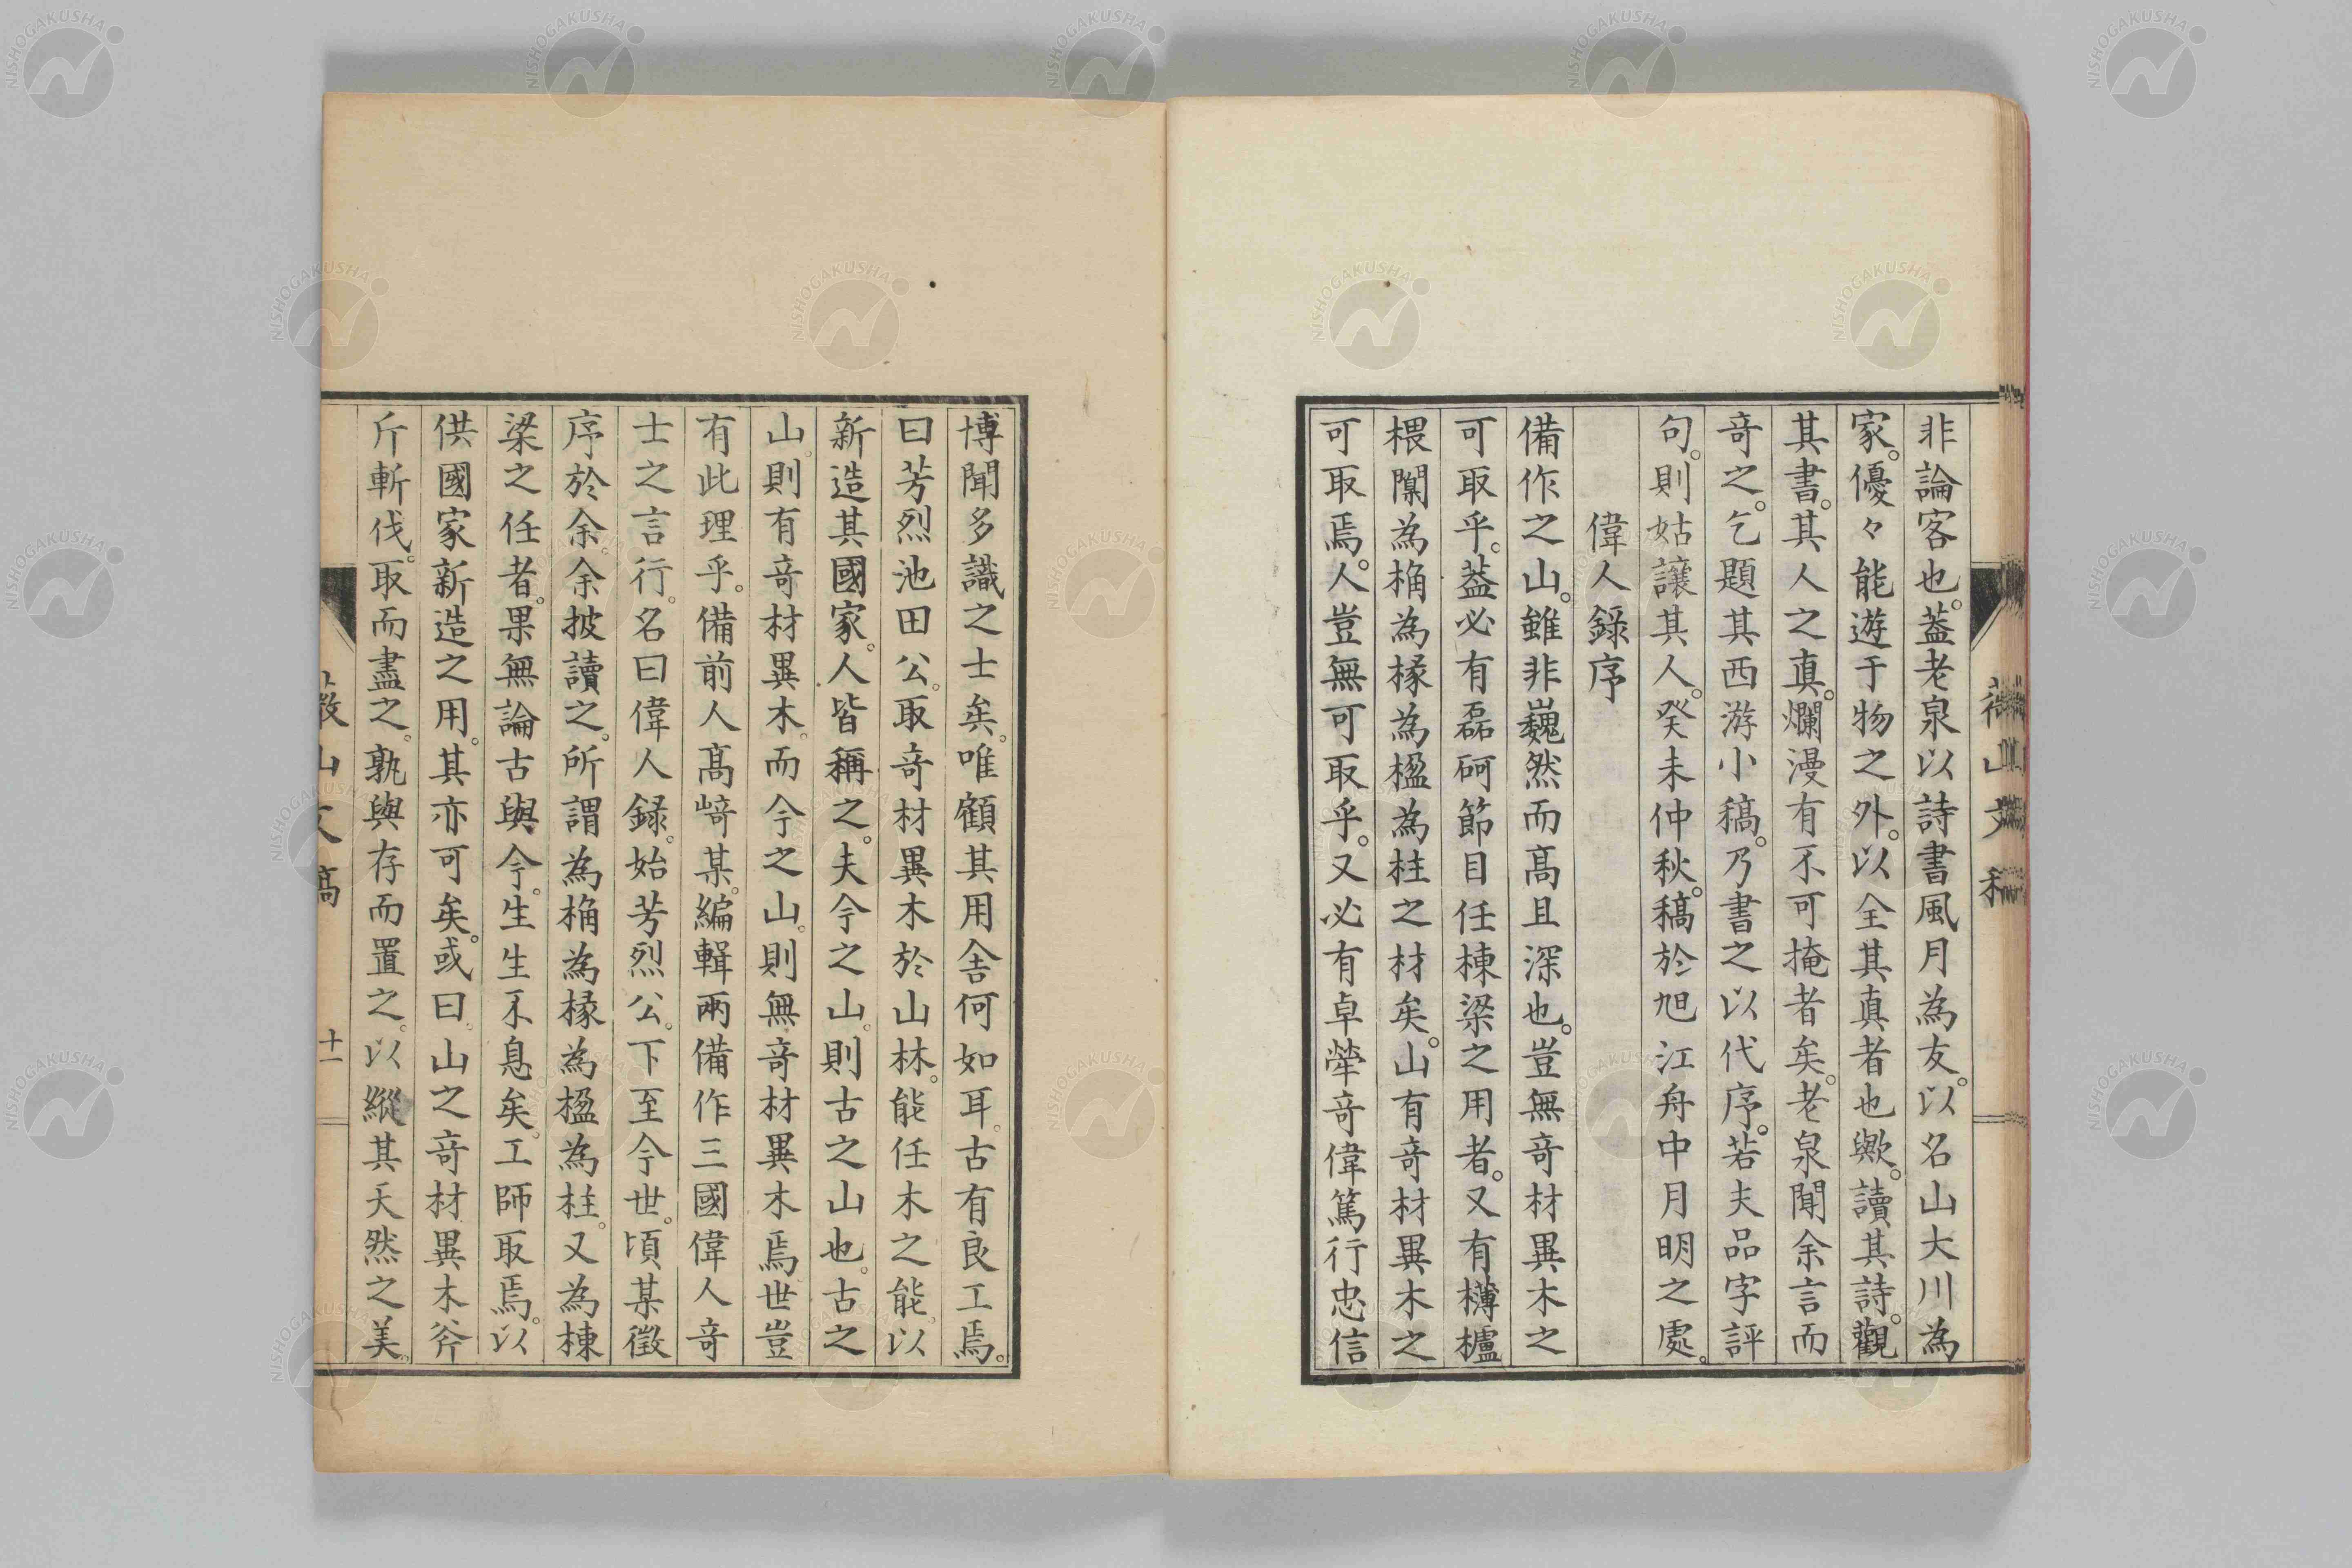 非論客也。葢老泉以詩書風月為友。以名山大川為
家。優々能遊于物之外。以全其真者也歟。讀其詩。觀
其書。其人之真。爛漫有不可掩者矣。老泉聞余言而
竒之。乞題其西游小稿。乃書之以代序。若夫品字評
句。則姑讓其人。癸未仲秋。稿於旭江舟中月明之處。
偉人錄序
備作之山。雖非巍然而高且深也。豈無竒材異木之
可取乎。葢必有磊砢節目任棟梁之用者。又有欂櫨
椳闑為桷為椽為楹為柱之材矣。山有竒材異木之
可取焉。人豈無可取乎。又必有卓犖竒偉篤行忠信
博聞多識之士矣。唯顧其用舍何如耳。古有良工焉。
曰芳烈池田公。取竒材異木於山林。能任木之能。以
新造其國家。人皆稱之。夫今之山。則古之山也。古之
山。則有竒材異木。而今之山。則無竒材異木焉世豈
有此理乎。備前人高﨑某。編輯兩備作三國偉人竒
士之言行。名曰偉人録。始芳烈公。下至今世。頃某徵
序於余。余披讀之。所謂為桷為椽為楹為柱。又為棟
梁之任者。果無論古與今。生生不息矣。工師取焉。以
供國家新造之用。其亦可矣。或曰。山之竒材異木。斧
斤斬伐。取而盡之。孰與存而置之。以縱其天然之美。
山文稿
十一
NISHOGAKUSHA